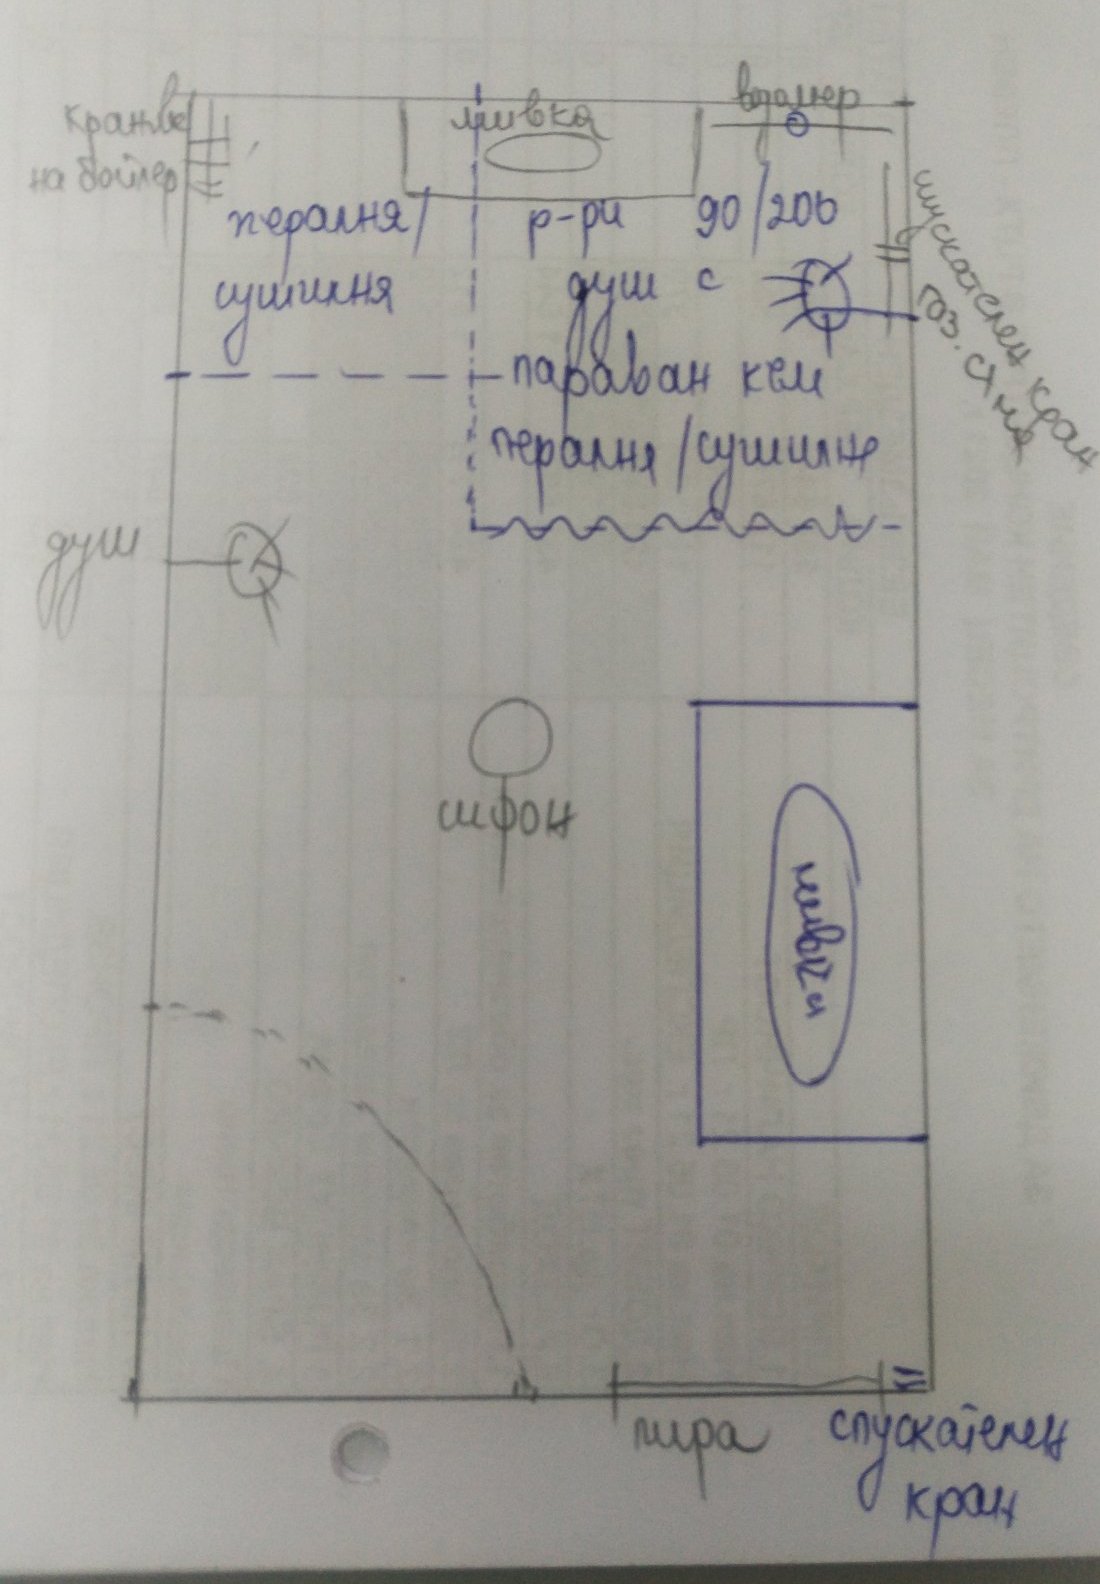 водомер
мивка
кранове
на бойлер
пералня/
сушилня
р-ри 90/200
душ с
параван към
пералня/сушилня
спускателен кран
душ
сифон
мивка
спускателен
кран